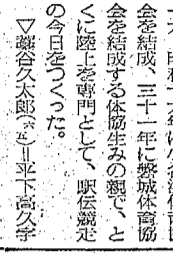 会を結成、三十一年に磐城体育協
会を結成する体協生みの親で、と
くに陸上を専門として、駅伝競走
の今日をつくった。
▽藁谷久太郎(六五)＝平下高久字